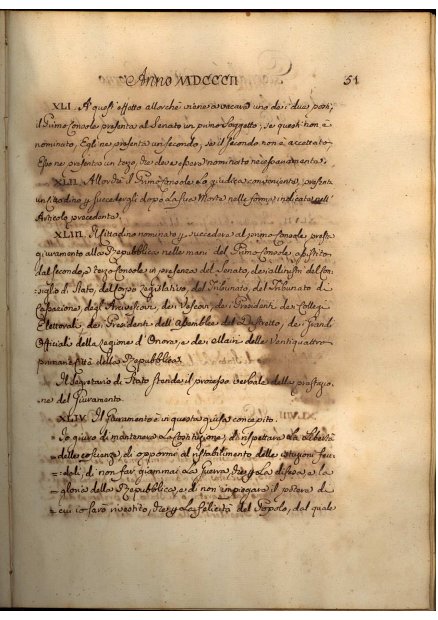 Anno MDCCCII 51
XLI. A quest'effetto allorchè viene a vacare uno dei due posti,
il Primo Console presenta al Senato un primo Soggetto; se questi non è
nominato, Egli ne presenta un secondo, se il secondo non è accettato,
Esso ne presenta un terzo, che dev'essere nominato necessariamente.
XLII. Allorchè il Primo Console lo giudica conveniente, presenta
un Cittadino p succedergli dopo la sua Morte nelle forme indicate nell'
Articolo precedente.
XLIII. Il Cittadino nominato p succedere al primo Console presta
giuramento alla Repubblica nelle mani del Primo Console assistito
dal secondo, e terzo Console in presenza del Senato, dei Ministri, del Con-
siglio di Stato, del Corpo Legislativo, del Tribunato, del Tribunato di
Cassazione, degli Arcivescovi, dei Vescovi, dei Presidenti de' Collegi
Elettorali, dei Presidenti dell'Assemblee del Distretto, dei Grand'
Officiali della Legione d'Onore, e dei Maires delle Ventiquattro
primarie Città della Repubblica.
Il Segretario di Stato stende il processo verbale della prestazio-
ne del Giuramento.
XLIV. Il Giuramento è in questa guisa concepito.
Io giuro di mantenere la Costituzione, di rispettare la libertà
delle coscienze, di oppormi al ristabilimento delle istituzioni feu-
dali, di non far giammai la Guerra, che p la difesa, e la
gloria della Repubblica, e di non impiegare il potere di
cui io sarò rivestito, che p la felicità del Popolo, dal quale